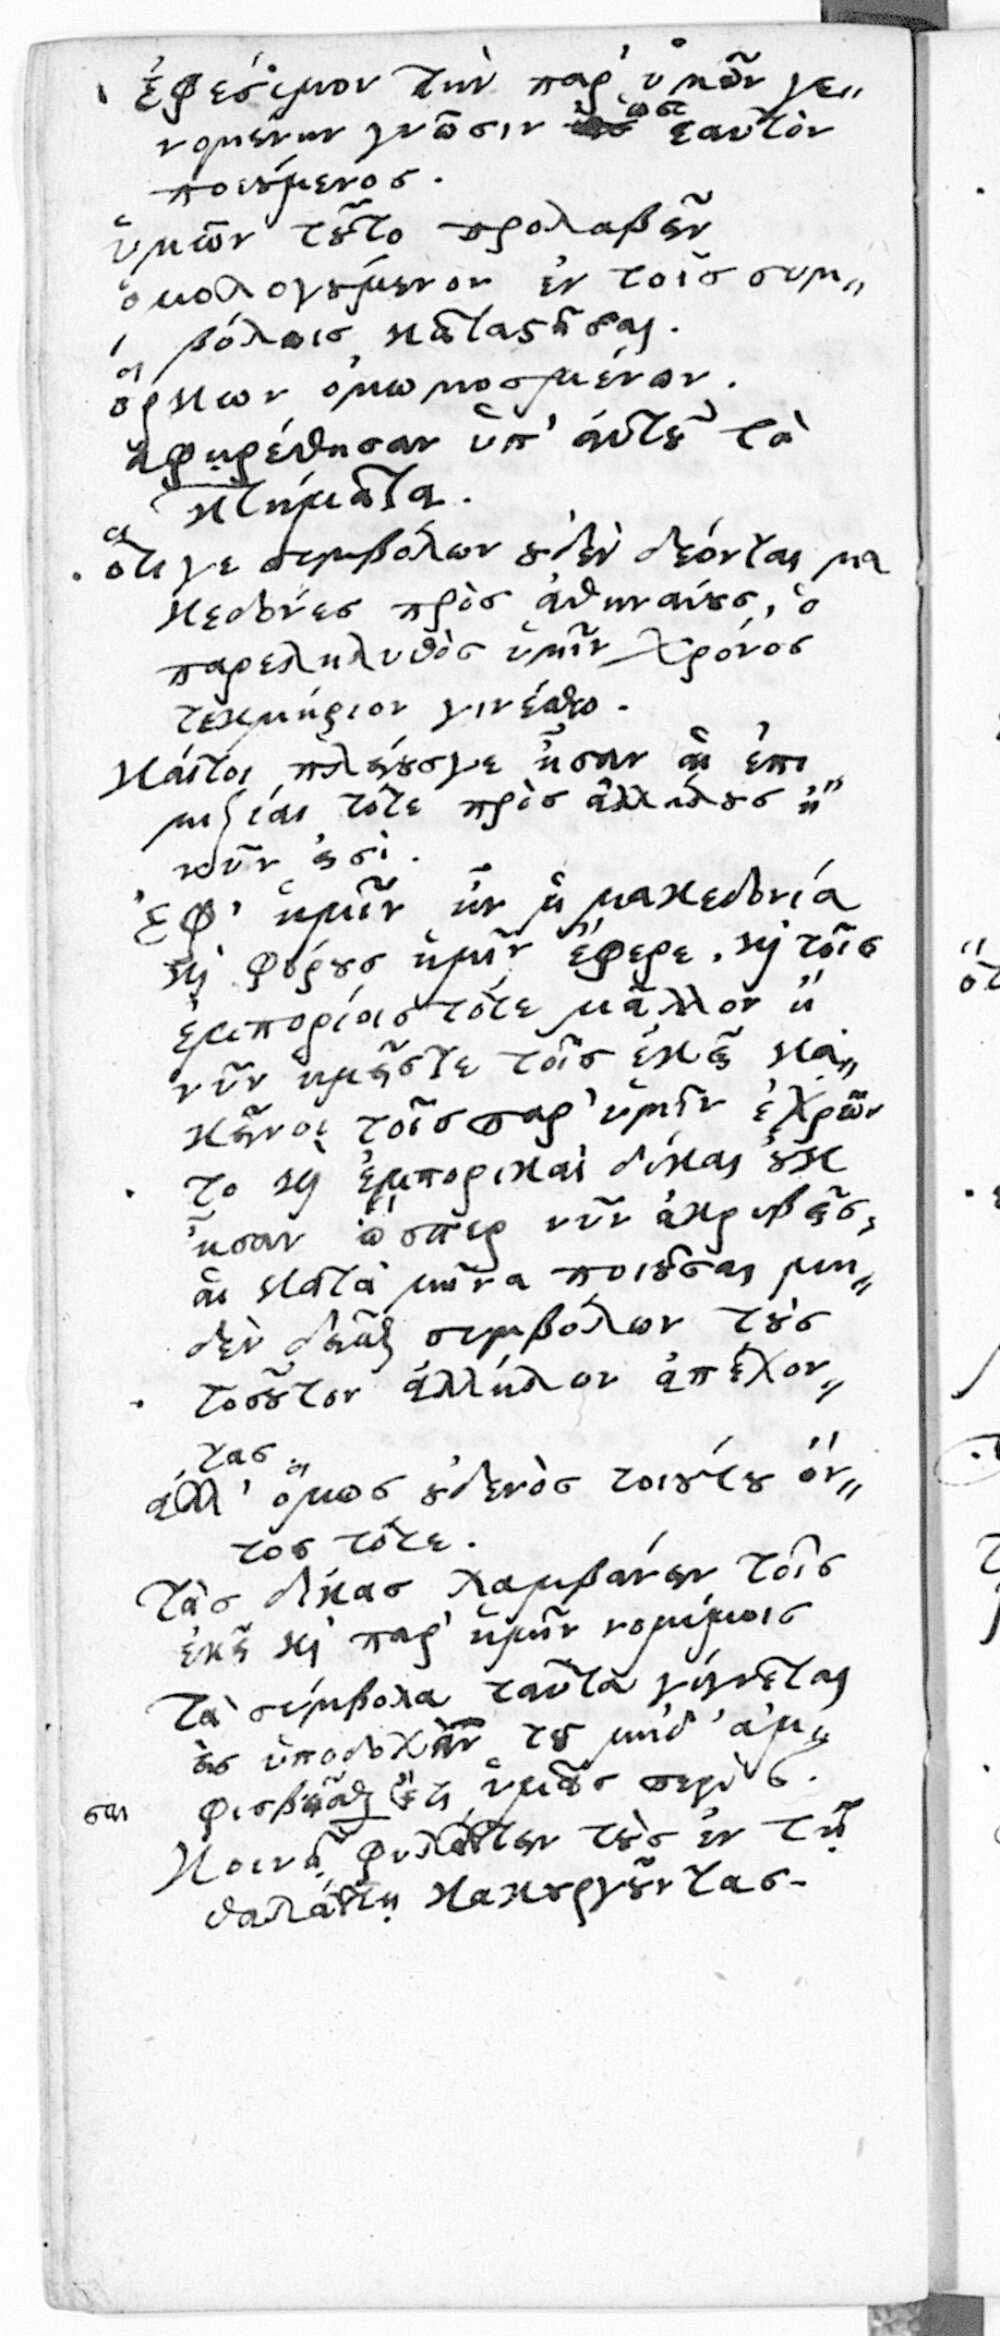 ἐφέσιμον τὴν παρ' ὑμῶν γε„
νομένην γνῶσιν ὡς ἑαυτὸν
ποιούμενος.
ὑμῶν τοῦτο προλαβεῖν
ὁμολογούμενον ἐν τοῖς συμ„
βόλοις καταστῆσαι.
ὅρκων ὀμωμοσμένων.
ἀφῃρέθησαν ὑπ' αὐτοῦ τὰ
κτήματα.
ὅτι γε συμβόλων οὐδὲν δέονται μα
κεδόνες πρὸς ἀθηναίους, ὁ
παρεληλυθὸς ὑμῖν χρόνος
τεκμήριον γινέσθω.
καίτοι πλείους γε ἦσαν αἱ ἐπι
μιξίαι τότε πρὸς ἀλλήλους ἢ
νῦν εἰσὶ.
Ἐφ' ἡμῖν ἦν ἡ μακεδονία
καὶ φόρους ἡμῖν ἔφερε. καὶ τοῖς
ἐμπορίοις τότε μᾶλλον ἢ
νῦν ἡμεῖς τε τοῖς ἐκεῖ κἀ„
κεῖνοι τοῖς παρ' ὑμῖν ἐχρῶν
το καὶ ἐμπορικαὶ δίκαι οὐκ
ἦσαν ὥσπερ νῦν ἀκριβεῖς,
αἱ κατὰ μῆνα ποιοῦσαι μη„
δὲν δεῖσθαι συμβόλων τοὺς
τοσοῦτον ἀλλήλων ἀπέχον„
τας.
ἀλλ' ὅμως οὐδενὸς τοιούτου ὄν„
τος τότε.
Τὰς δίκας λαμβάνειν τοῖς
ἐκεῖ καὶ παρ' ἡμῖν νομίμοις
Τὰ σύμβολα ταῦτα γίγνεται
εἰς ὑποδοχὴν τοῦ μηδ' ἀμ„
φισβητῆσαι ἔτι ὑμᾶς περὶ
σαι
Κοινῇ φυλάττειν τοὺς ἐν τῇ
θαλάττῃ κακουργοῦντας.